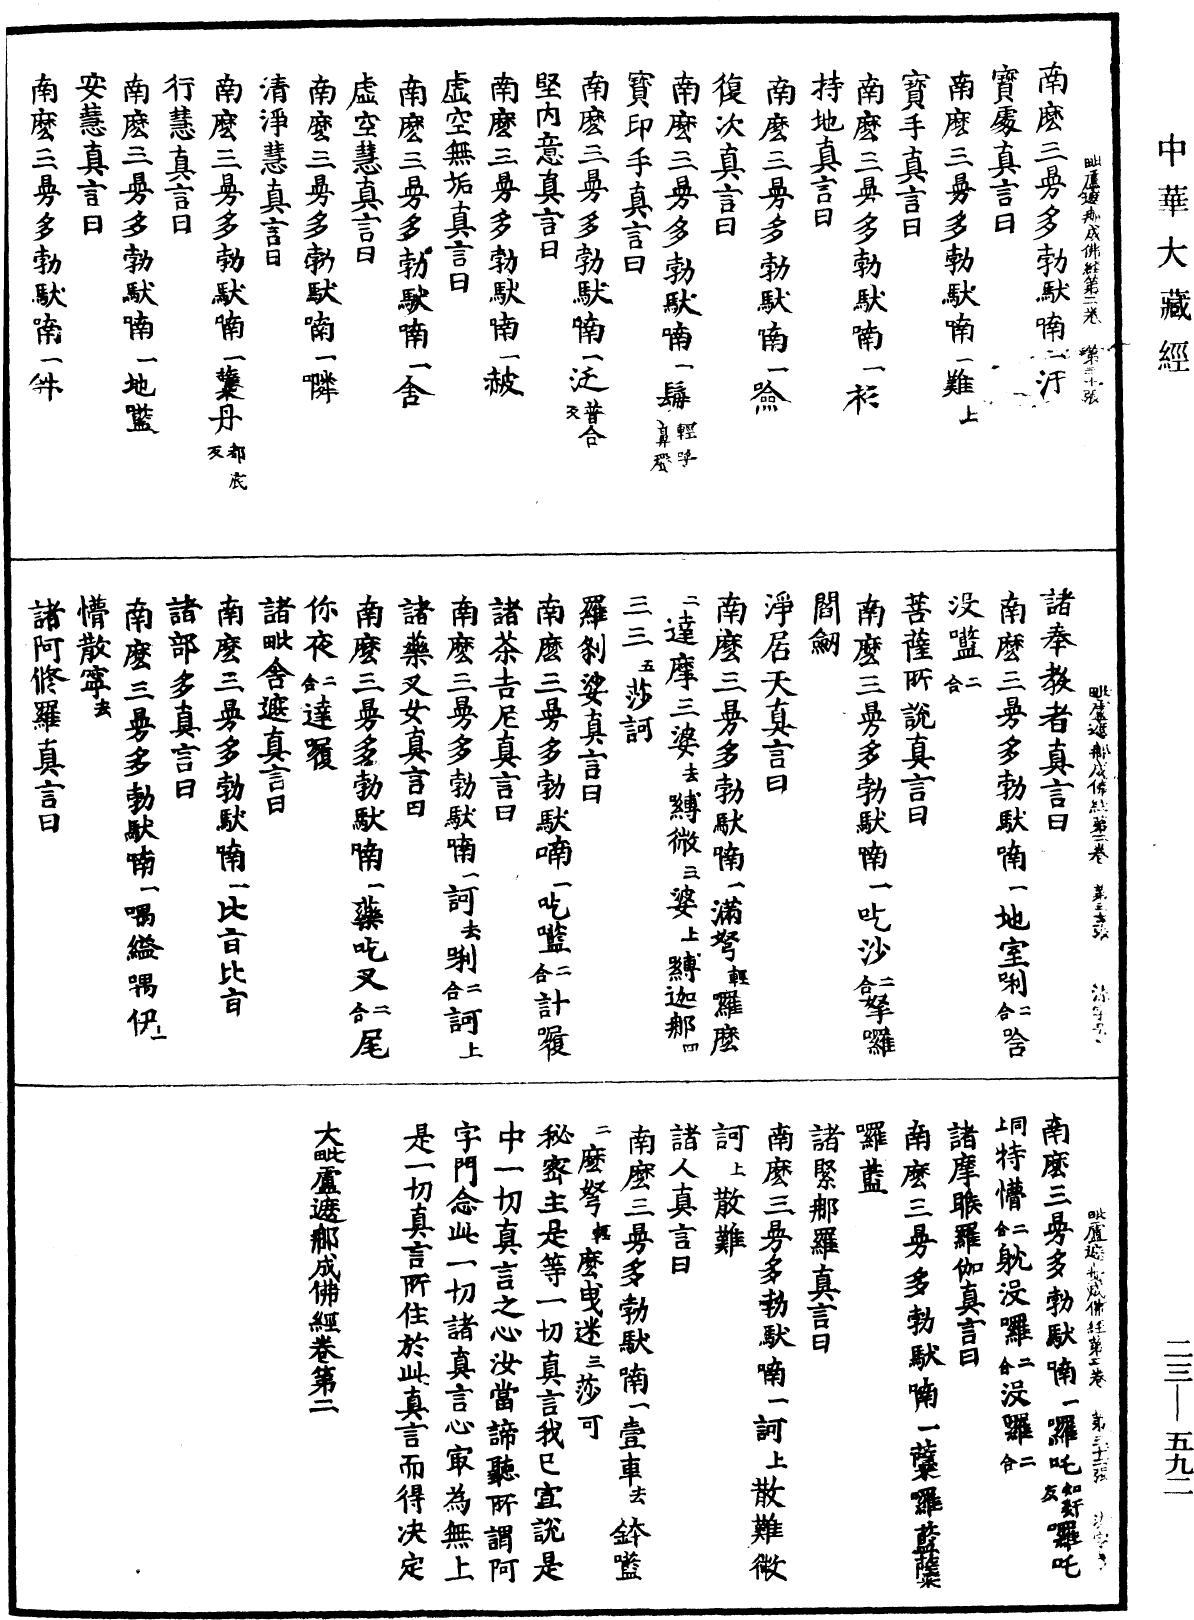 中華大藏經
南麼三曼多勃馱喃一汙
寶處真言曰
南麼三曼多勃馱喃一難上
寶手真言曰
南麼三曼多勃馱喃一衫
持地真言曰
南麼三曼多勃馱喃一噞
復次真言曰
南麼三曼多勃馱喃一髯輕呼鼻聲
寶印手真言曰
南麼三曼多勃馱喃一泛普合反
堅內意真言曰
南麼三曼多勃馱喃一赧
虛空無垢真言曰
南麼三曼多勃馱喃一含
虛空慧真言曰
南麼三曼多勃馱喃一嶙
清淨慧真言曰
南麼三曼多勃馱喃一蘗丹都底反
行慧真言曰
南麼三曼多勃馱喃一地㘕
安慧真言曰
南麼三曼多勃馱喃一𤙖
諸奉教者真言曰
南麼三曼多勃馱喃一地室唎二合唅
沒㘕二合
菩薩所說真言曰
南麼三曼多勃馱喃一吃沙二合拏囉
閻劒
淨居天真言曰
南麼三曼多勃馱喃一滿弩輕囉麼
二達摩三婆去縛微三婆上縛迦那四
三三五莎訶
羅剎娑真言曰
南麼三曼多勃馱喃一吃㘕二合計履
諸荼吉尼真言曰
南麼三曼多勃馱喃一訶去唎二合訶上
諸藥叉女真言曰
南麼三曼多勃馱喃一藥吃叉二合尾
你夜二合達履
諸毗舍遮真言曰
南麼三曼多勃馱喃一比旨比旨
諸部多真言曰
南麼三曼多勃馱喃一喁縊喁伊上
懵散寧去
諸阿修羅真言曰
南麼三曼多勃馱喃一囉吒知訝反囉吒
同上特懵二合躭沒囉二合沒囉二合
諸摩睺羅伽真言曰
南麼三曼多勃馱喃一蘗囉藍蘗
囉藍
諸緊那羅真言曰
南麼三曼多勃馱喃一訶上散難微
訶上散難
諸人真言曰
南麼三曼多勃馱喃一壹車去鉢㘕
二麼弩輕麼曳迷三莎可
秘密主是等一切真言我已宣說是
中一切真言之心汝當諦聽所謂阿
字門念此一切諸真言心寂為無上
是一切真言所住於此真言而得決定
大毗盧遮那成佛經卷第二
二三—五九二